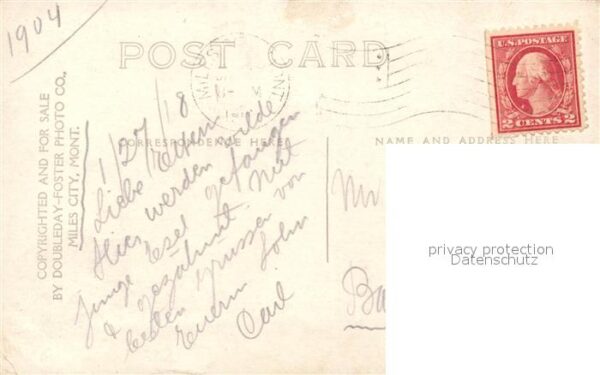 1904
POST CARD
U.S. POSTAGE
2 CENTS 2
COPYRIGHTED AND FOR SALE
BY DOUBLEDAY-FOSTER PHOTO CO.,
MILES CITY, MONT.
CORRESPONDENCE HERE
NAME AND ADDRESS HERE
1/27/18
Liebe Eltern
Hier werden wilde
junge Esel gefangen
& gezähmt Mit
besten Grüssen von
Euerm Sohn
Carl
Mr
Ba
privacy protection
Datenschutz